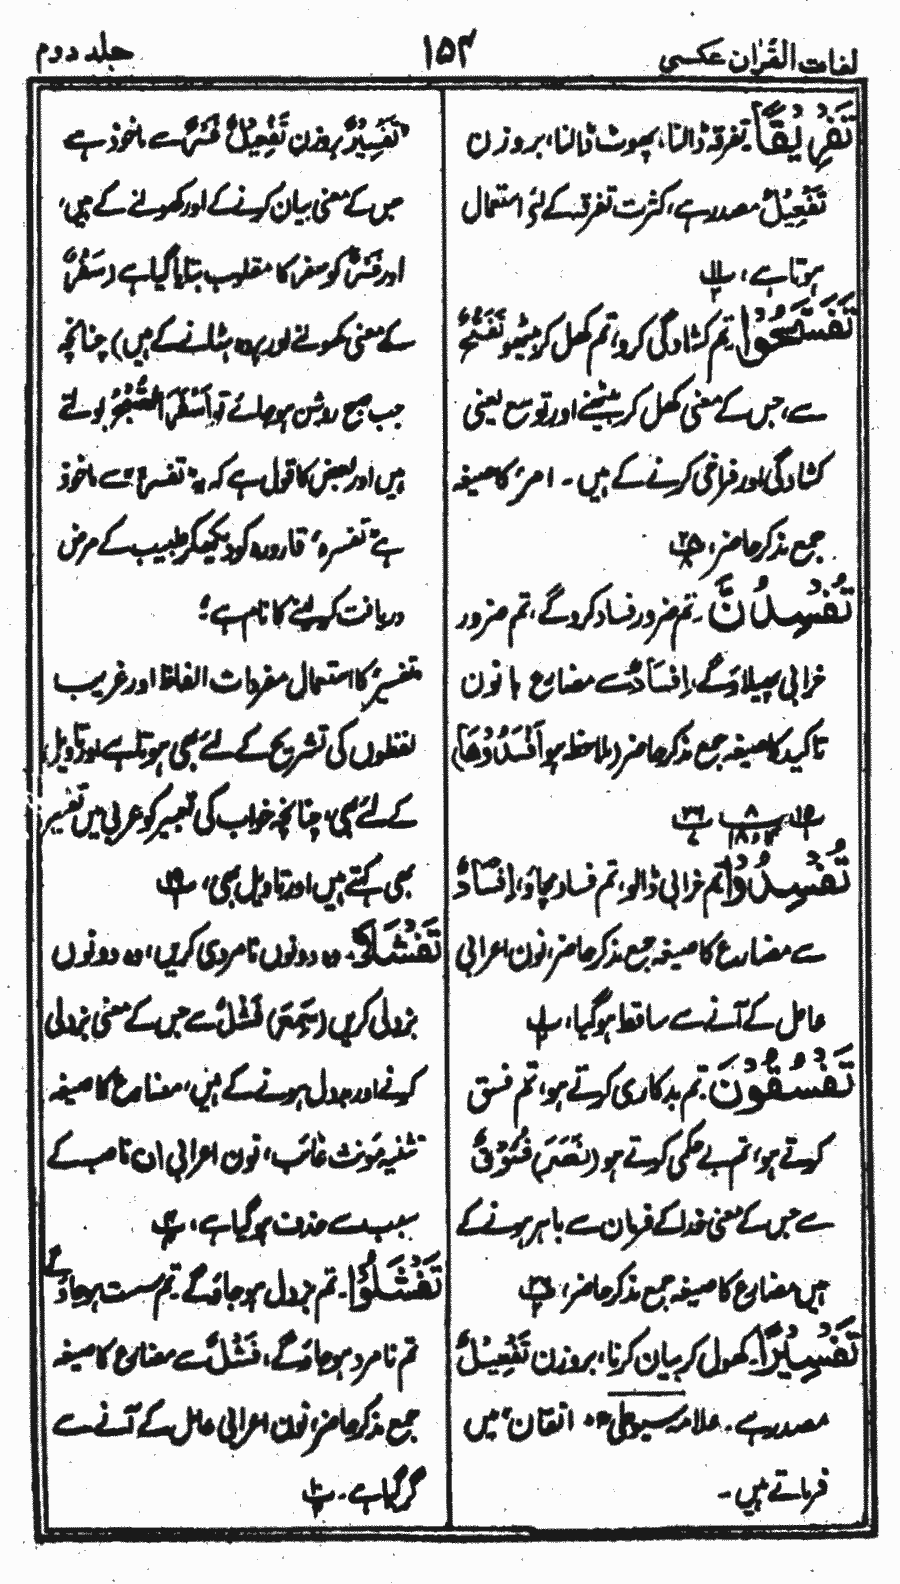 لغات القرآن عکسی
۱۵۴
جلد دوم
تَفْرِیْقًا تفرقہ ڈالنا، پھوٹ ڈالنا، بروزن
تَفْعِیْلٌ مصدر ہے، کثرت تفرقہ کے لئے استعمال
ہوتا ہے، پ۱۱
تَفَسَّحُوْا تم کشادگی کرو، تم کھل کر بیٹھو تَفَسُّحٌ
سے، جس کے معنی کھل کر بیٹھنے اور توسع یعنی
کشادگی اور فراخی کرنے کے ہیں ۔ امر کا صیغہ
جمع مذکر حاضر، پ۲۸
تُفْسِدُنَّ ۔ تم ضرور فساد کروگے، تم ضرور
خرابی پھیلاؤگے، اِفْسَادٌ سے مضارع با نون
تاکید کا صیغہ جمع مذکر حاضر (ملاحظہ ہو اَفْسَدُوْهَا)
تُفْسِدُوْا تم خرابی ڈالو، تم فساد مچاؤ، اِفْسَادٌ
سے مضارع کا صیغہ جمع مذکر حاضر، نون اعرابی
عامل کے آنے سے ساقط ہوگیا، پ۱
تَفْسُقُوْنَ ۔ تم بدکاری کرتے ہو، تم فسق
کرتے ہو، تم بے حکمی کرتے ہو (نَصَرَ) فُسُوْقٌ
سے جس کے معنی خدا کے فرمان سے باہر ہونے کے
ہیں مضارع کا صیغہ جمع مذکر حاضر، پ۲۶
تَفْسِیْرًا ۔ کھول کر بیان کرنا، بروزن تَفْعِیْلٌ
مصدر ہے ۔ علامہ سیوطی اتقان میں
فرماتے ہیں ۔
”تَفْسِیْرٌ بروزن تَفْعِیْلٌ فَسْرٌ سے ماخوذ ہے
جس کے معنی بیان کرنے کے اور کھولنے کے ہیں،
اور فَسْرٌ کو سفر کا مقلوب بتایا گیا ہے (سَفَرَ
کے معنی کھولنے اور پردہ ہٹانے کے ہیں) چنانچہ
جب صبح روشن ہوجائے تو اَسْفَرَ الصُّبْحُ بولتے
ہیں اور بعض کا قول ہے کہ یہ تفسرۃ سے ماخوذ
ہے، تفسرہ قارورہ کو دیکھکر طبیب کے مرض
دریافت کرلینے کا نام ہے“
تفسیر کا استعمال مفردات الفاظ اور غریب
لفظوں کی تشریح کے لئے بھی ہوتا ہے اور تاویل
کے لئے بھی، چنانچہ خواب کی تعبیر کو عربی میں تفسیر
بھی کہتے ہیں اور تاویل بھی، پ۱۹
تَفْشَلَا ۔ وہ دونوں نامردی کریں، وہ دونوں
بزدلی کریں (سَمِعَ) فَشْلٌ سے جس کے معنی بزدلی
کرنے اور بددل ہونے کے ہیں، مضارع کا صیغہ
تثنیہ مؤنث غائب، نون اعرابی ان ناصب کے
سبب سے حذف ہوگیا ہے، پ۴
تَفْشَلُوْا ۔ تم بزدل ہوجاؤگے ۔ تم سست ہوجاؤگے
تم نامرد ہوجاؤگے، فَشْلٌ سے مضارع کا صیغہ
جمع مذکر حاضر، نون اعرابی عامل کے آنے سے
گرگیا ہے ۔ پ۱۰